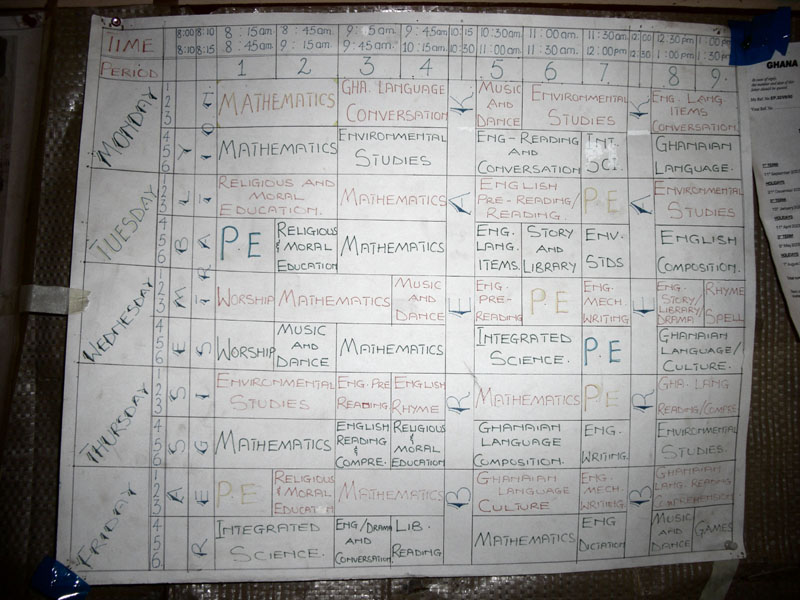 TIME 8:00 8:10 8:10 8:15 8:15am 8:45am 8:45am. 9:15am. 9:15am. 9:45am. 9:45am. 10:15am. 10:15 10:30 10:30am. 11:00am. 11:00am. 11:30am. 11:30am 12:00pm 12:00 12:30 12:30pm 1:00pm 1:00pm 1:30pm
PERIOD 1 2 3 4 5 6 7 8 9.
MONDAY
1 2 3
MATHEMATICS
GHA. LANGUAGE
CONVERSATION
MUSIC
AND
DANCE
ENVIRONMENTAL
STUDIES
ENG. LANG.
ITEMS
CONVERSATION.
4 5 6
MATHEMATICS
ENVIRONMENTAL
STUDIES
ENG-READING
AND
CONVERSATION
INT.
SCI.
GHANAIAN
LANGUAGE.
TUESDAY
1 2 3
RELIGIOUS AND
MORAL
EDUCATION.
MATHEMATICS
ENGLISH
PRE-READING/
READING.
P.E
ENVIRONMENTAL
STUDIES
4 5 6
P.E
RELIGIOUS
& MORAL
EDUCATION
MATHEMATICS
ENG.
LANG.
ITEMS.
STORY
AND
LIBRARY
ENV.
STDS
ENGLISH
COMPOSITION.
WEDNESDAY
1 2 3
WORSHIP
MATHEMATICS
MUSIC
AND
DANCE
ENG.
PRE-
READING
P.E
ENG.
MECH.
WRITING
ENG.
STORY/
LIBRARY/
DRAMA
RHYME
SPELL
4 5 6
WORSHIP
MUSIC
AND
DANCE
MATHEMATICS
INTEGRATED
SCIENCE.
P.E
GHANAIAN
LANGUAGE/
CULTURE.
THURSDAY
1 2 3
ENVIRONMENTAL
STUDIES
ENG. PRE
READING
ENGLISH
RHYME
MATHEMATICS
P.E
GHA. LANG
4 5 6
MATHEMATICS
ENGLISH
READING
&
COMPRE.
RELIGIOUS
& MORAL
EDUCATION
GHANAIAN
LANGUAGE
COMPOSITION.
ENG.
WRITING.
ENVIRONMENTAL
STUDIES.
FRIDAY
1 2 3
P.E
RELIGIOUS
& MORAL
EDUCATION
MATHEMATICS
GHANAIAN
LANGUAGE
CULTURE
ENG.
MECH.
WRITING.
GHANAIAN
LANG. READING
COMPREHENSION
4 5 6
INTEGRATED
SCIENCE.
ENG/DRAMA
AND
CONVERSATION
LIB.
READING
MATHEMATICS
ENG
DICTATION
MUSIC
AND
DANCE
GAMES
ASSEMBLY
REGISTRATION
BREAK
BREAK
GHANA
HOLIDAYS
HOLIDAYS